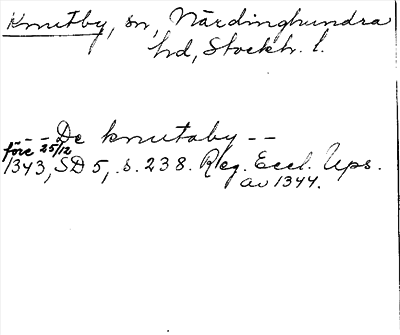 Knutby, sn, Närdinghundra
hd, Stockh. l.
- - De knutaby - -
före 25/12
1343, SD 5, s. 238. Reg. Eccl. Ups.
av 1344.